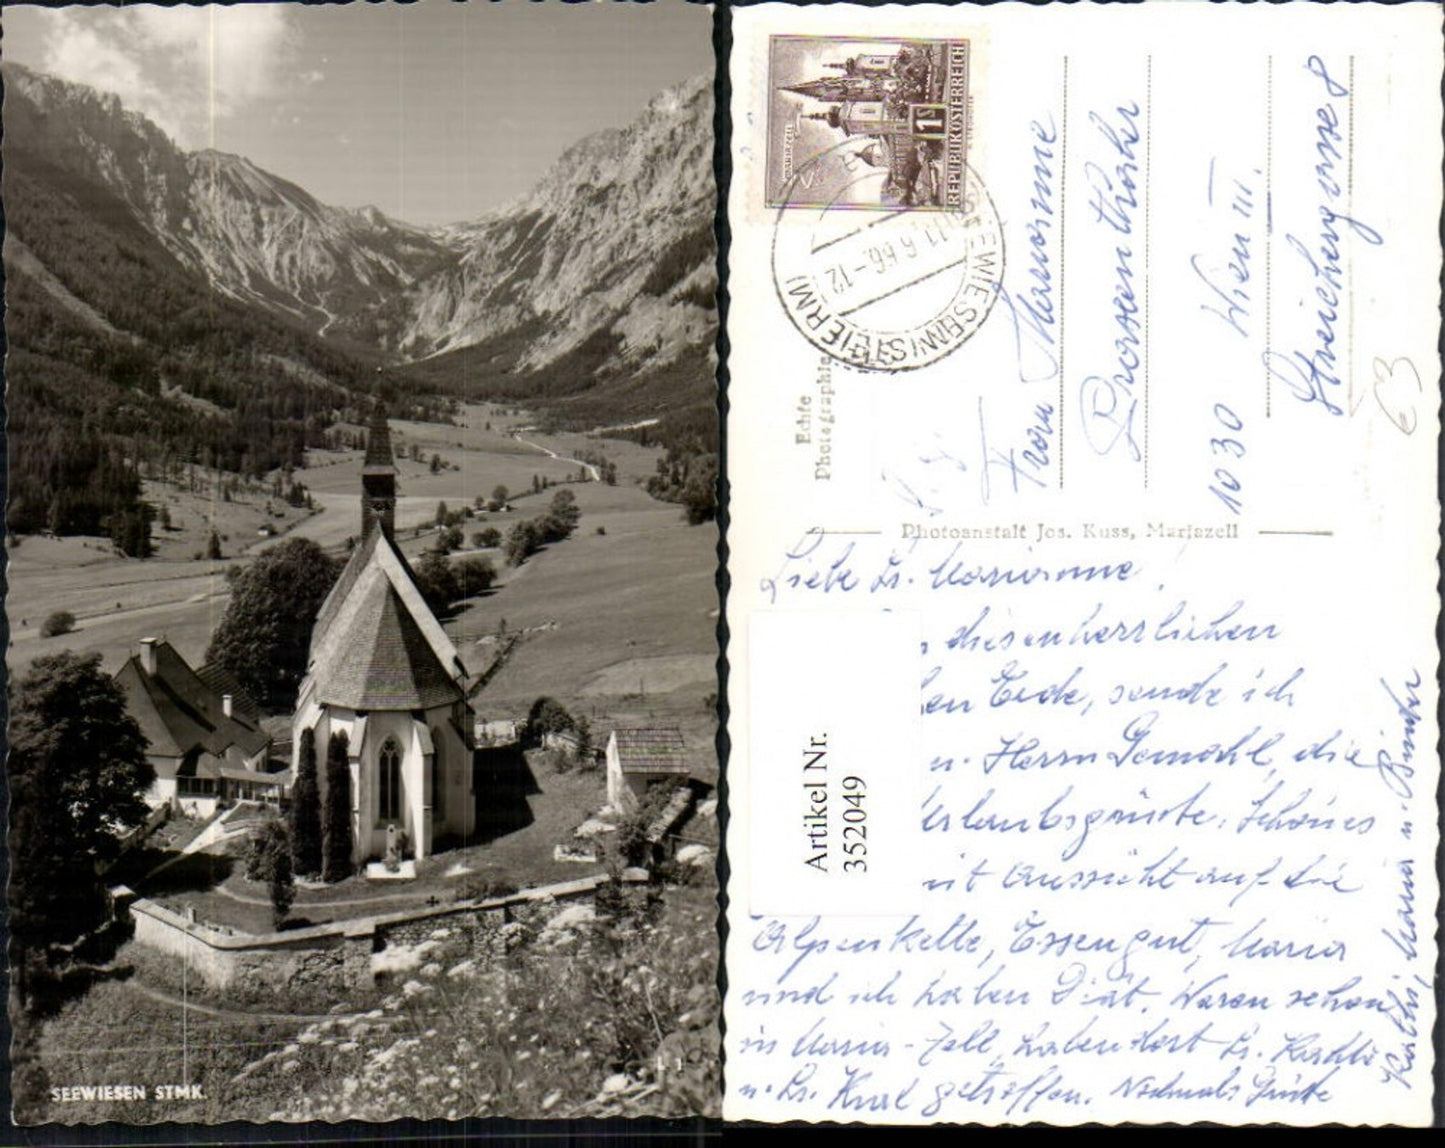 SEEWIESEN STMK.
L 1
MARIAZELL
1 S
REPUBLIK ÖSTERREICH
SEEWIESEN (STEIERM)
11.6.66.-12
Echte
Photographie
Frau Marianne
1030 Wien III.
63
Photoanstalt Jos. Kuss, Mariazell
Liebe Fr. Marianne!
diesen herrlichen
Ecke, sende ich
u. Herrn Gemahl, die
Urlaubsgrüße. Schönes
mit Aussicht auf die
Alpenkette, Essen gut, Maria
und ich haben Diät. Waren schon
in Maria-Zell, haben dort Fr. Kathi
u. Fr. Karl getroffen. Nochmals Grüße
Kathi, Maria u.
Artikel Nr.
352049